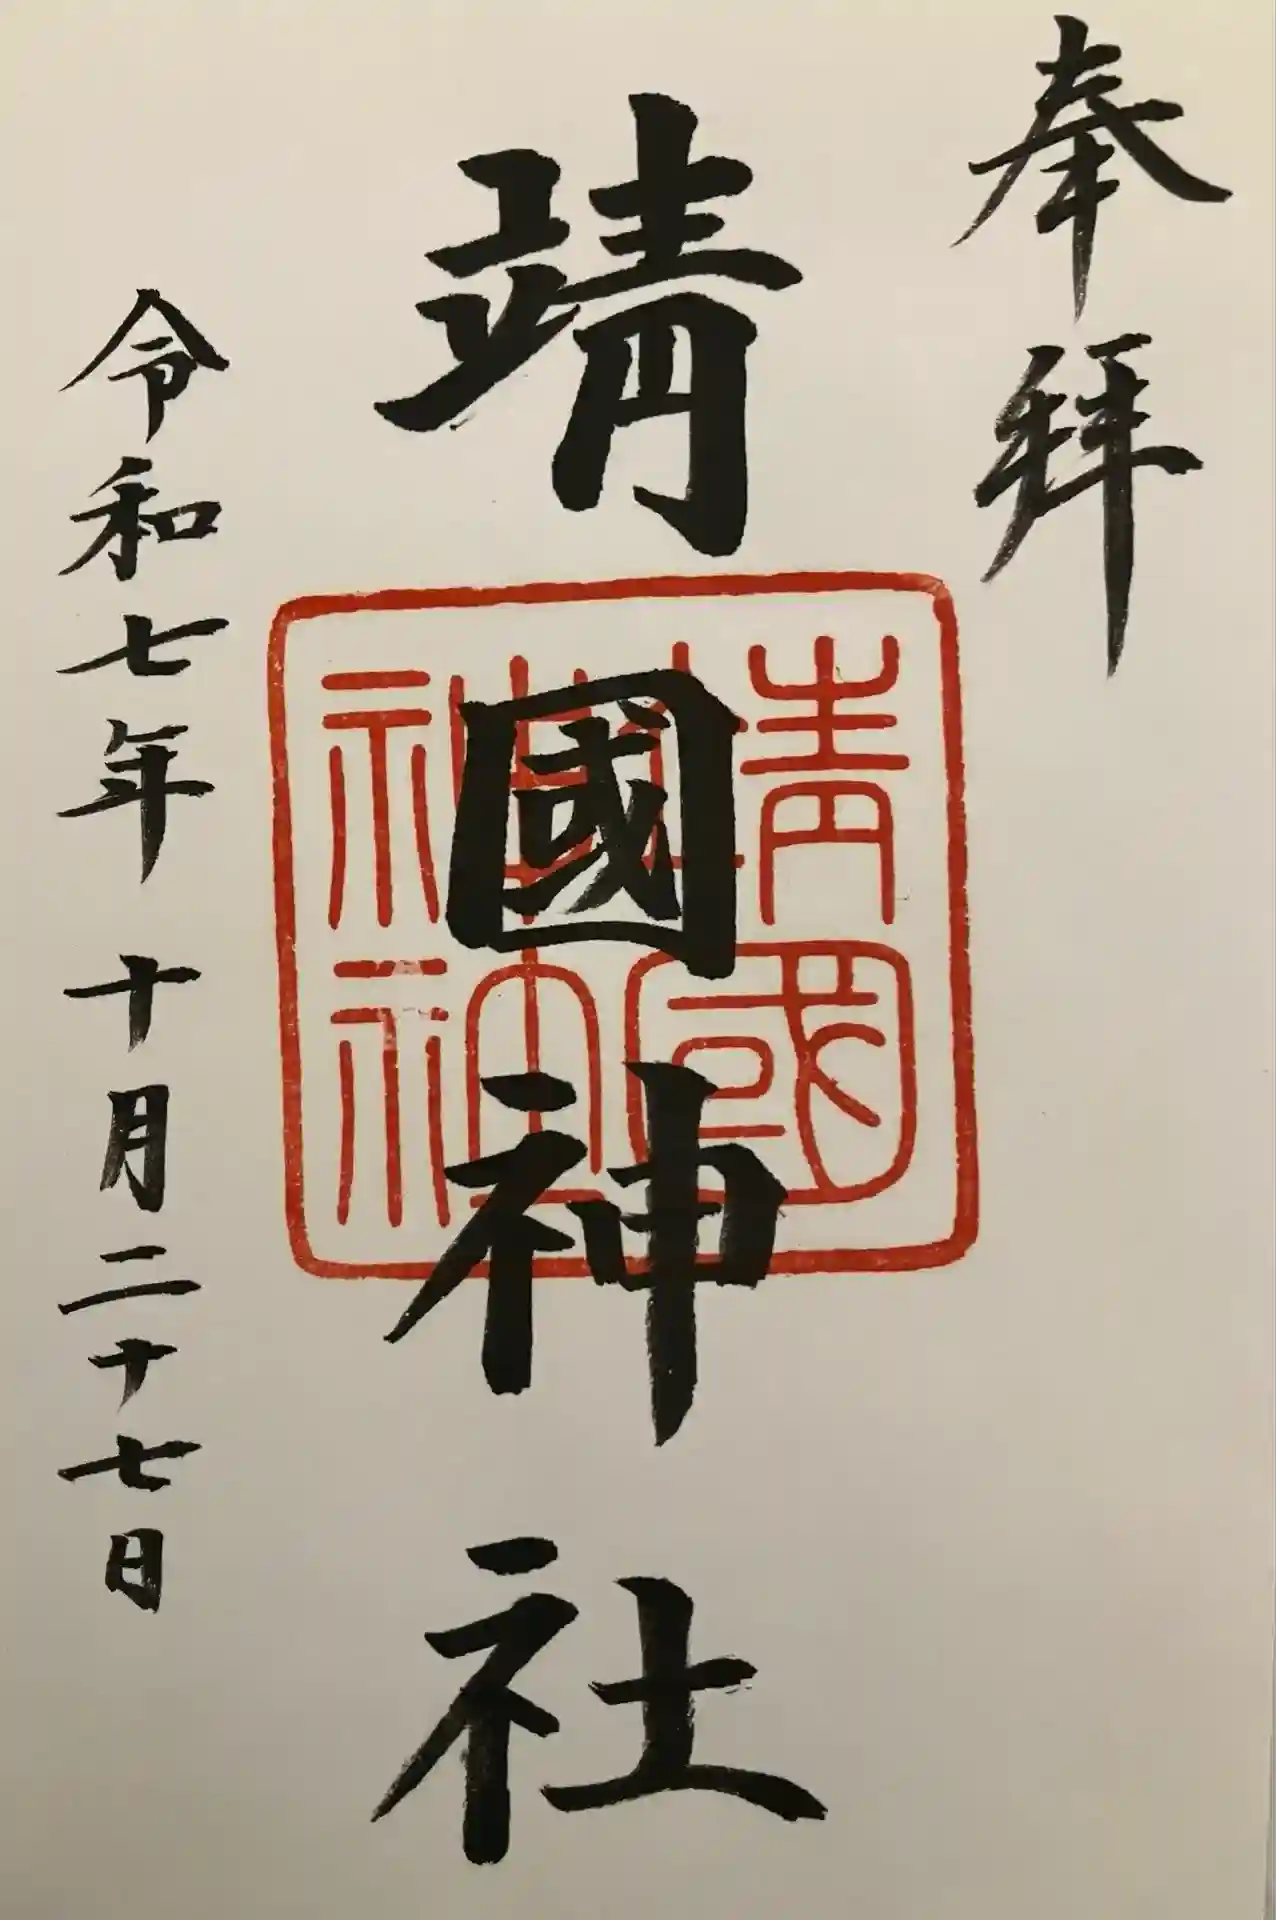 奉拝
靖國神社
靖國神社
令和七年十月二十七日